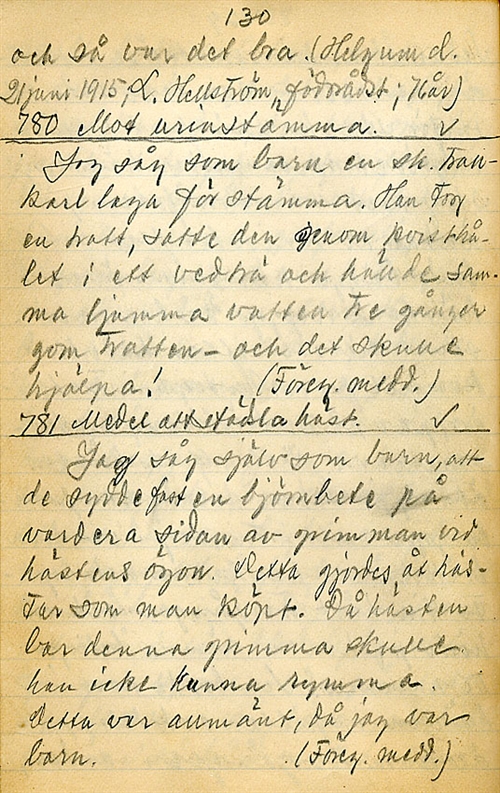 130
och så var det bra. (Helgum d.
21 juni 1915, L. Hellström, födorådst; 71 år)
780 Mot urinstämma. ✓
Jag såg som barn en sk. Tran-
karl laga för stämma. Han tog
en tratt, satte den genom kvisthå-
let i ett vedträ och hällde sam-
ma ljumma vatten tre gånger
gom tratten – och det skulle
hjälpa! (Föreg. medd.)
781 Medel att städsla häst. ✓
Jag såg själv som barn, att
de sydde fast en björnbete på
vardera sidan av grimman vid
hästens ögon. Detta gjordes åt häs-
tar som man köpt. Då hästen
bar denna grimma skulle
han icke kunna rymma.
Detta var allmänt, då jag var
barn. (Föreg. medd.)